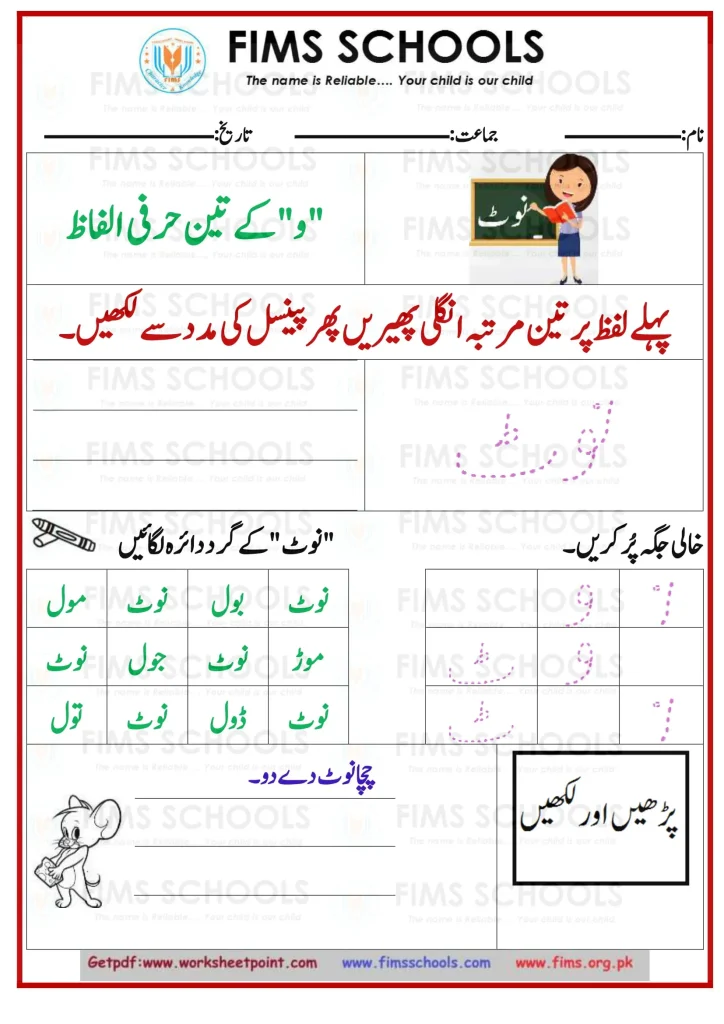 FIMS SCHOOLS
The name is Reliable.... Your child is our child
نام: جماعت: تاریخ:
نوٹ
"و" کے تین حرفی الفاظ
پہلے لفظ پر تین مرتبہ انگلی پھیریں پھر پینسل کی مدد سے لکھیں۔
نوٹ
خالی جگہ پُر کریں۔
نـ و
و ٹ
نـ ٹ
"نوٹ" کے گرد دائرہ لگائیں
نوٹ بول نوٹ مول
موڑ نوٹ جول نوٹ
نوٹ ڈول نوٹ تول
پڑھیں اور لکھیں
چچا نوٹ دے دو۔
Getpdf:www.worksheetpoint.com www.fimsschools.com www.fims.org.pk